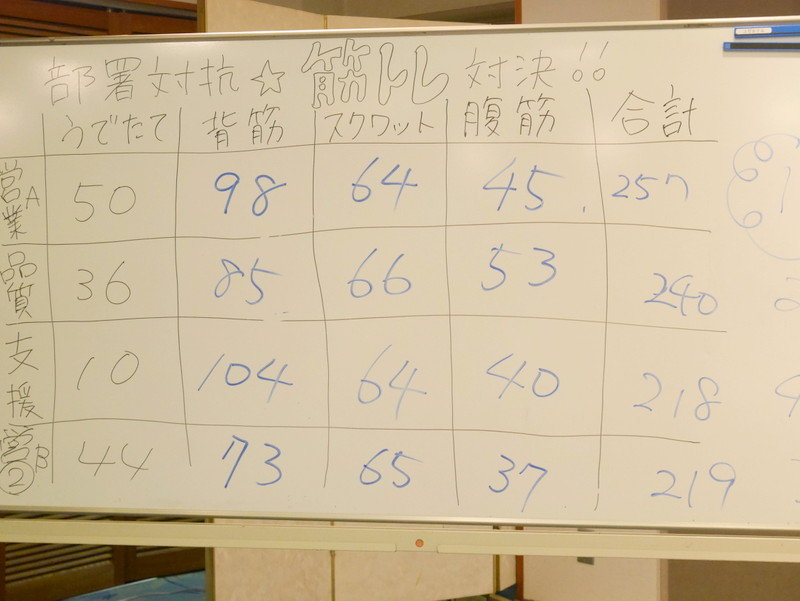 部署対抗☆筋トレ対決!!
うでたて 背筋 スクワット 腹筋 合計
営業A 50 98 64 45 257
品質 36 85 66 53 240
支援 10 104 64 40 218
営②B 44 73 65 37 219